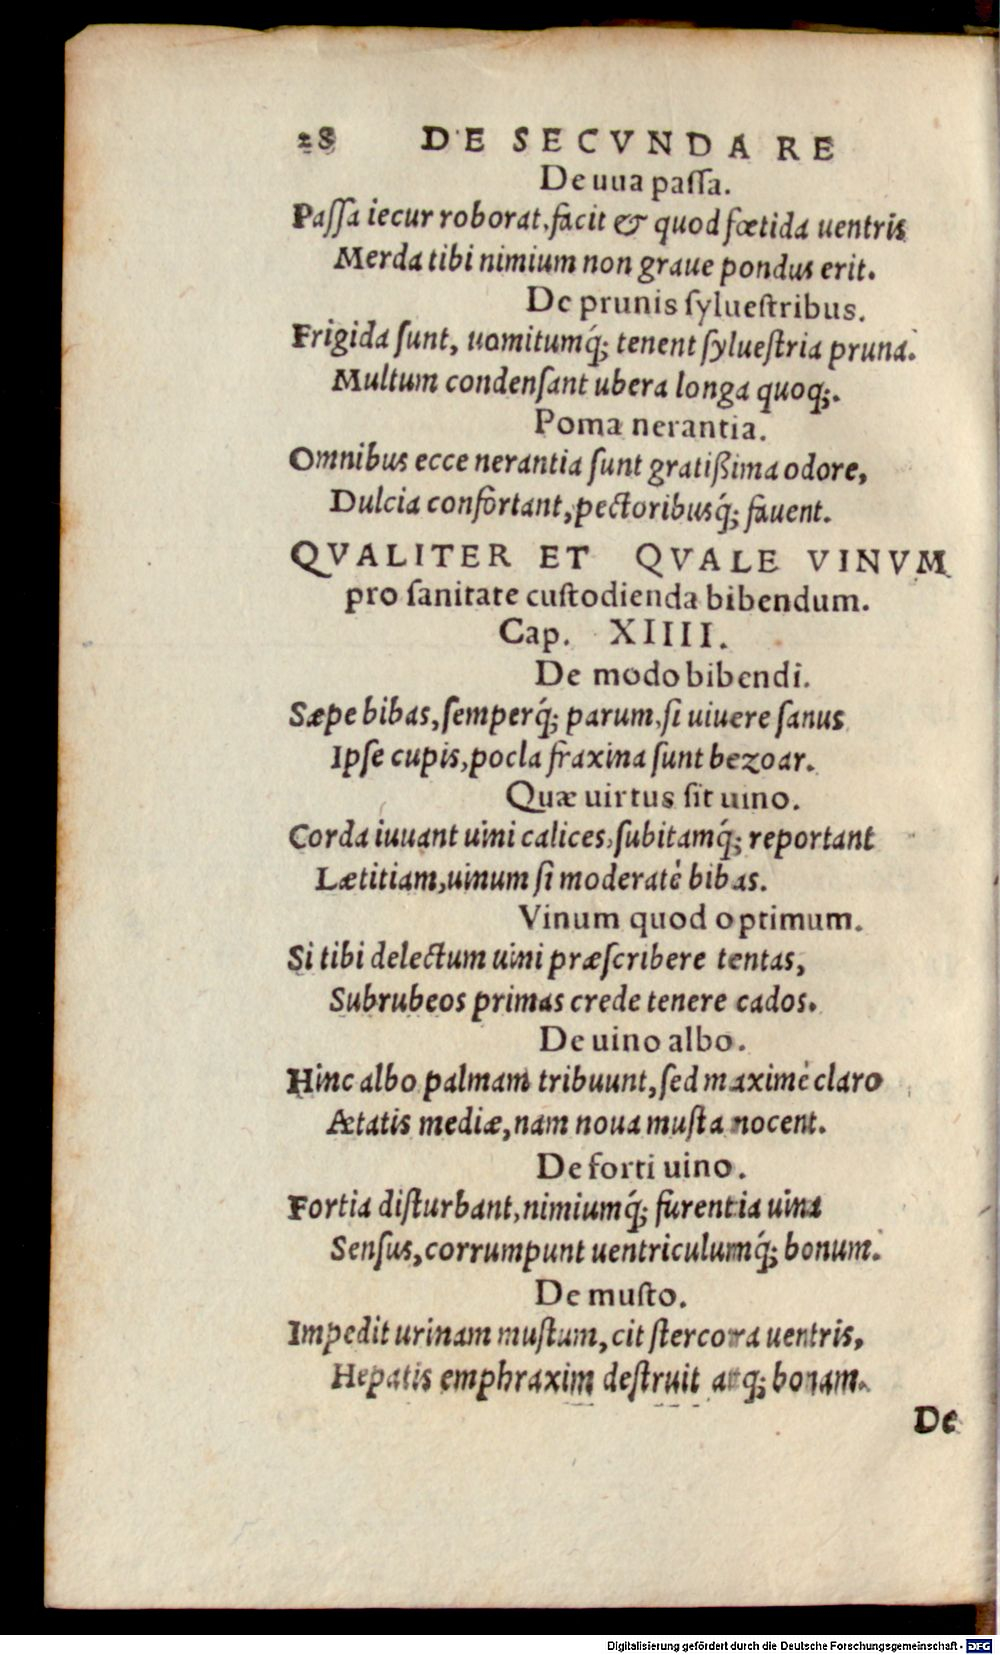 28 DE SECVNDA RE
De uua paſſa.
Paſſa iecur roborat, facit & quod fœtida uentris
Merda tibi nimium non graue pondus erit.
De prunis ſylueſtribus.
Frigida ſunt, uomitumq́; tenent ſylueſtria pruna.
Multum condenſant ubera longa quoq;.
Poma nerantia.
Omnibus ecce nerantia ſunt gratißima odore,
Dulcia confortant, pectoribusq́; fauent.
QVALITER ET QVALE VINVM
pro ſanitate cuſtodienda bibendum.
Cap. XIIII.
De modo bibendi.
Sæpe bibas, ſemperq́; parum, ſi uiuere ſanus
Ipſe cupis, pocla fraxina ſunt bezoar.
Quæ uirtus ſit uino.
Corda iuuant uini calices, ſubitamq́; reportant
Lætitiam, uinum ſi moderatè bibas.
Vinum quod optimum.
Si tibi delectum uini præſcribere tentas,
Subrubeos primas crede tenere cados.
De uino albo.
Hinc albo palmam tribuunt, ſed maximè claro
Ætatis mediæ, nam noua muſta nocent.
De forti uino.
Fortia diſturbant, nimiumq́; furentia uina
Senſus, corrumpunt uentriculumq́; bonum.
De muſto.
Impedit urinam muſtum, cit ſtercora uentris,
Hepatis emphraxim deſtruit atq; bonam.
De
Digitalisierung gefördert durch die Deutsche Forschungsgemeinschaft - DFG